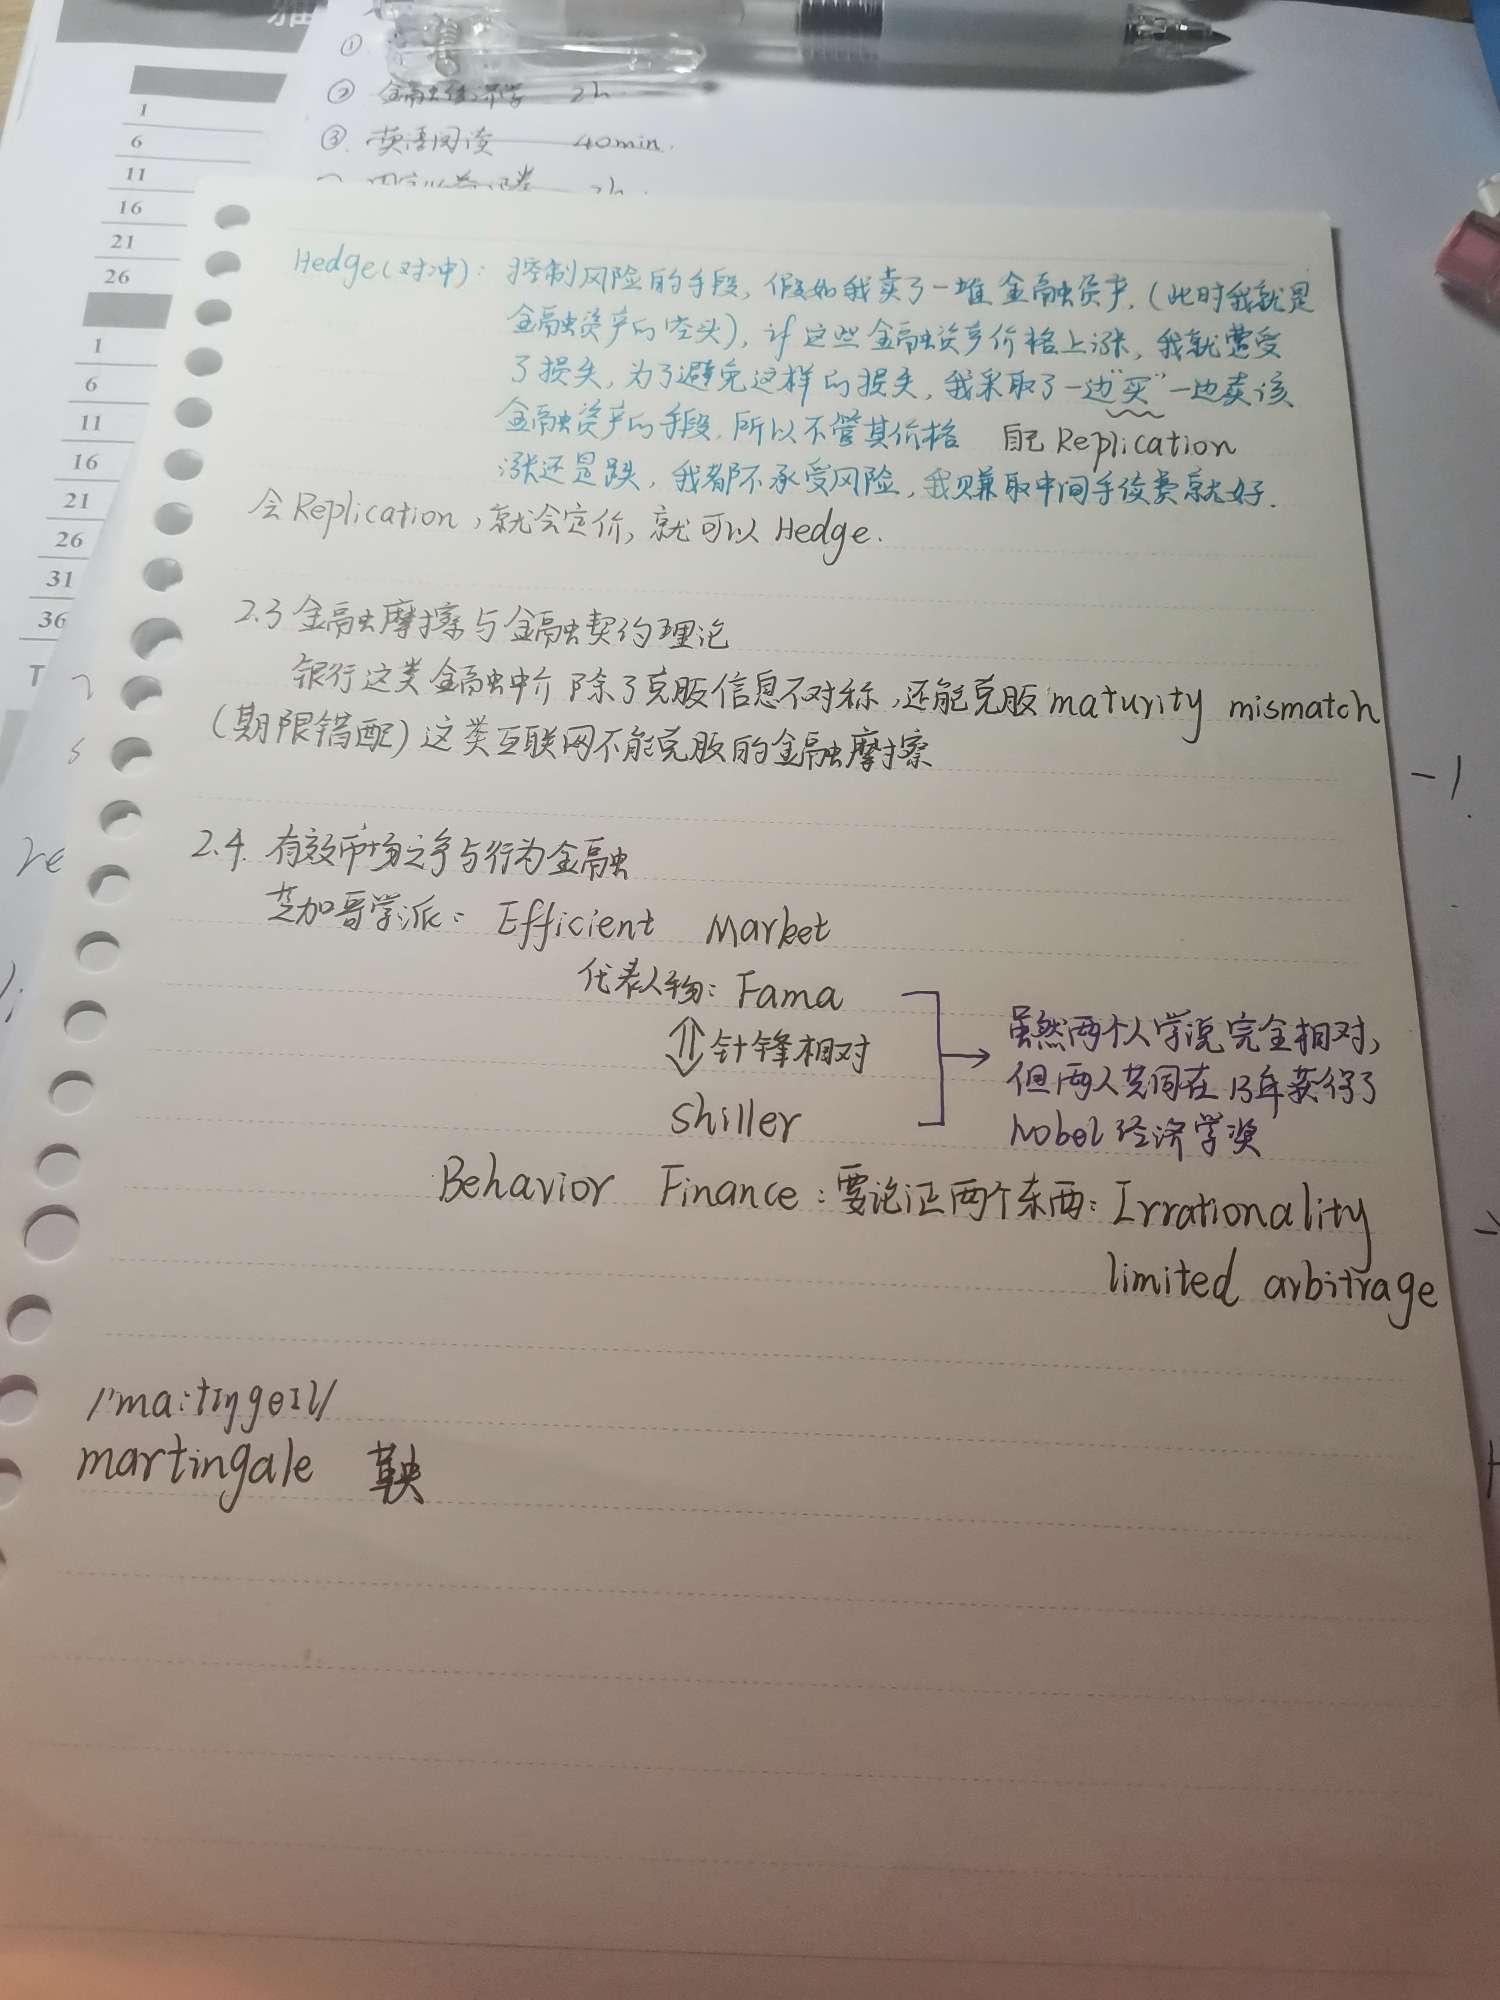 ①
② 金融经济学 2h
③ 英语阅读 40min.
1
6
11
16
21
26
1
6
11
16
21
26
31
36
T
re
-1
Hedge(对冲): 控制风险的手段, 假如我卖了一堆金融资产, (此时我就是
金融资产的空头), if 这些金融资产价格上涨, 我就遭受
了损失, 为了避免这样的损失, 我采取了一边"买"一边卖该
金融资产的手段, 所以不管其价格 自己Replication
涨还是跌, 我都不承受风险, 我只赚取中间手续费就好.
会Replication, 就会定价, 就可以Hedge.
2.3 金融摩擦与金融契约理论
银行这类金融中介除了克服信息不对称, 还能克服maturity mismatch
(期限错配) 这类互联网不能克服的金融摩擦
2.4. 有效市场之争与行为金融
芝加哥学派: Efficient Market
代表人物: Fama
针锋相对
Shiller
虽然两个人学说完全相对,
但两人共同在13年获得了
Nobel经济学奖
Behavior Finance: 要论证两个东西: Irrationality
limited arbitrage
/'ma:tɪŋgeɪl/
martingale 鞅